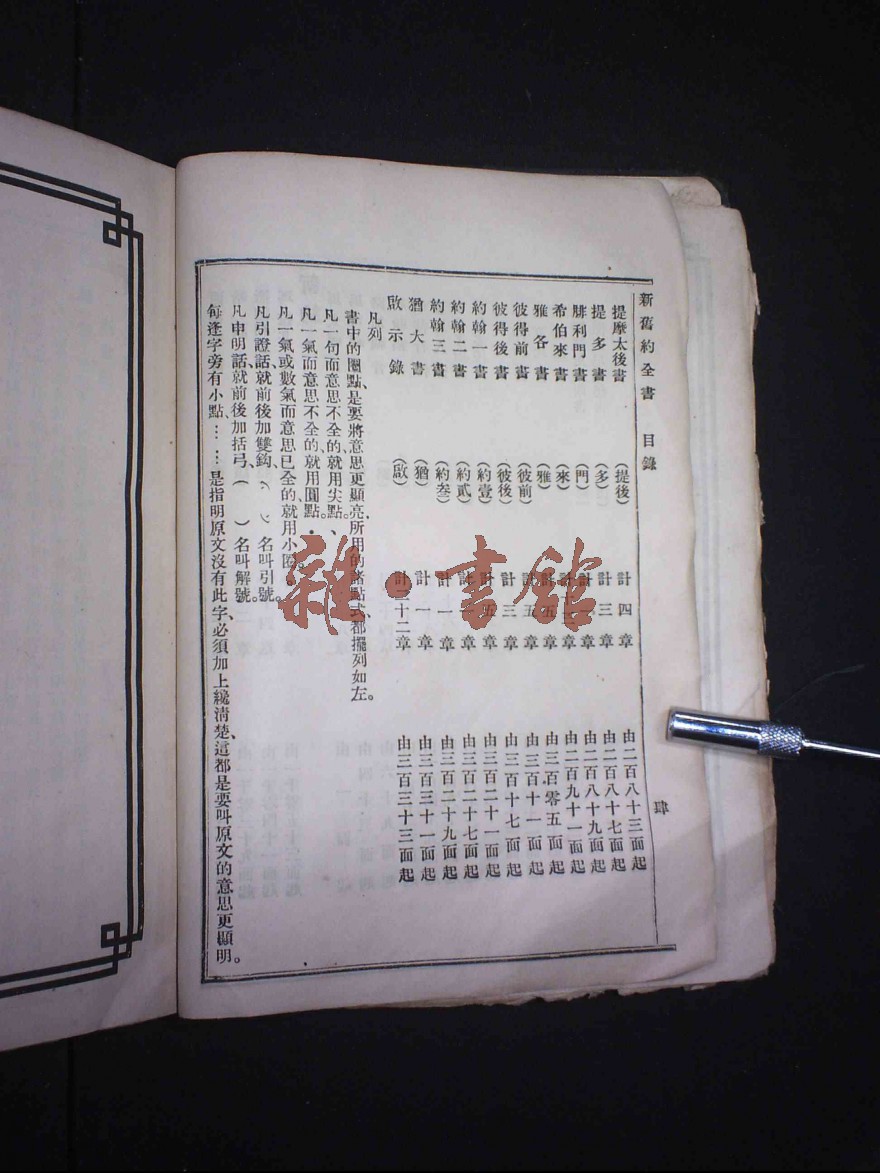 新舊約全書 目錄 肆
提摩太後書 (提後) 計四章 由二百八十三面起
提多書 (多) 計三章 由二百八十七面起
腓利門書 (門) 計一章 由二百八十九面起
希伯來書 (來) 計十三章 由二百九十一面起
雅各書 (雅) 計五章 由三百零五面起
彼得前書 (彼前) 計五章 由三百十一面起
彼得後書 (彼後) 計三章 由三百十七面起
約翰一書 (約壹) 計五章 由三百二十一面起
約翰二書 (約貳) 計 章 由三百二十七面起
約翰三書 (約叁) 計一章 由三百二十九面起
猶大書 (猶) 計一章 由三百三十一面起
啟示錄 (啟) 計二十二章 由三百三十三面起
凡列
書中的圈點、是要將意思更顯亮、所用的諸點式、都擺列如左。
凡一句而意思不全的、就用尖點。、
凡一氣而意思不全的、就用圓點。•
凡一氣或數氣而意思已全的就用小圈。。
凡引證話、就前後加雙鈎、〈 〉名叫引號。
凡申明話、就前後加括弓、( )名叫解號。
每逢字旁有小點、……是指明原文沒有此字、必須加上纔清楚、這都是要叫原文的意思更顯明。
雜·書館